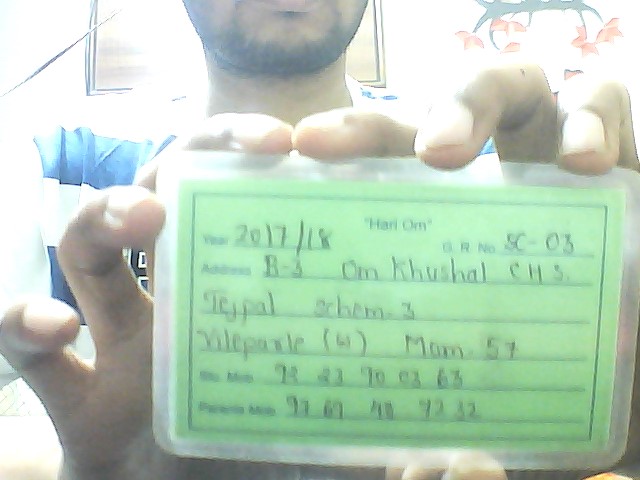 "Hari Om"
Year 2017/18 G. R. No. SC-03
Address B-3 Om Khushal C H S.
Tejpal schem-3
Vileparle (W) Mum. 57
Stu. Mob.
Parents Mob.